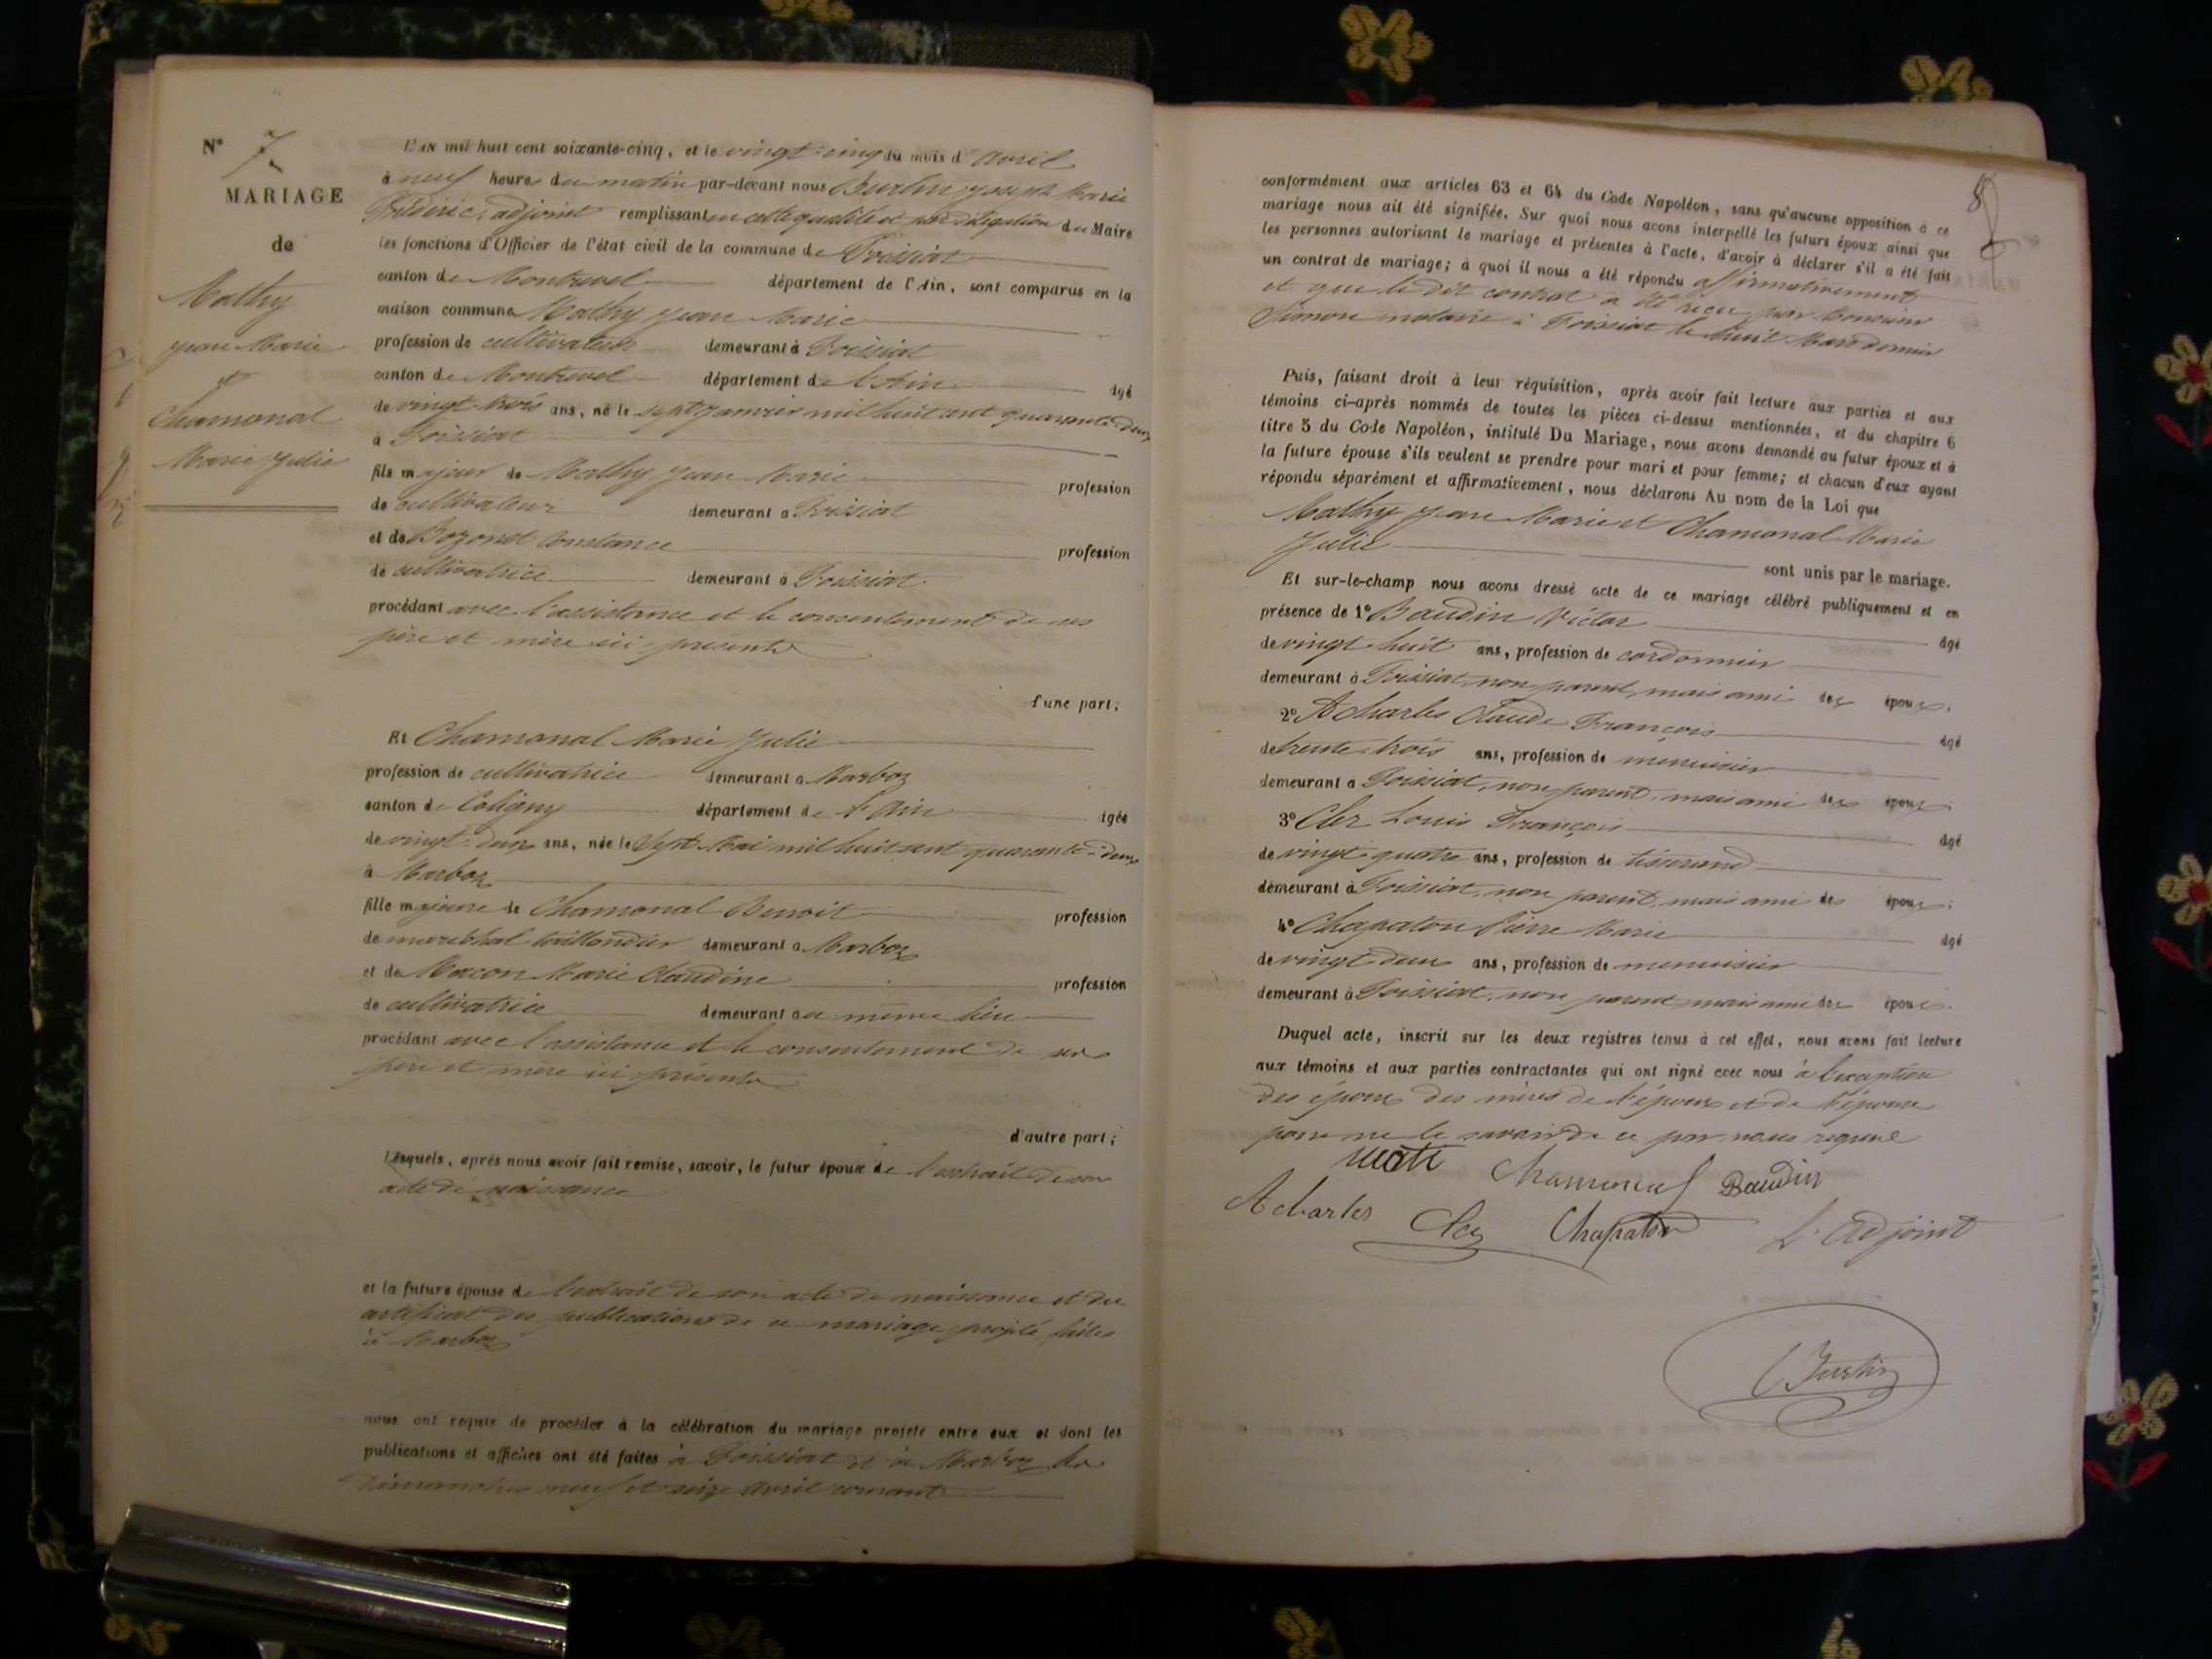 N° 7
MARIAGE
de
Mathy
Jean Marie
et
Chamonal
Marie Julie
L'AN mil huit cent soixante-cinq, et le vingt-cinq du mois d'avril
à neuf heures du matin par-devant nous Burlin Joseph Marie
Frédéric, adjoint remplissant en cette qualité et par délégation du Maire
les fonctions d'Officier de l'état civil de la commune de Foissiat
canton de Montrevel département de l'Ain, sont comparus en la
maison commune Mathy Jean Marie
profession de cultivateur demeurant à Foissiat
canton de Montrevel département de l'Ain âgé
de vingt trois ans, né le sept janvier mil huit cent quarante-deux
à Foissiat
fils majeur de Mathy Jean Marie profession
de cultivateur demeurant à Foissiat
et de Bozonet Constance profession
de cultivatrice demeurant à Foissiat
procédant avec l'assistance et le consentement de ses
père et mère ici présents
d'une part;
Et Chamonal Marie Julie
profession de cultivatrice demeurant à Marboz
canton de Coligny département de l'Ain âgée
de vingt-deux ans, née le sept Mai mil huit cent quarante-deux
à Marboz
fille majeure de Chamonal Benoit profession
de maréchal taillandier demeurant à Marboz
et de Macon Marie Claudine profession
de cultivatrice demeurant au même lieu
procédant avec l'assistance et le consentement de ses
père et mère ici présents
d'autre part;
Lesquels, après nous avoir fait remise, savoir, le futur époux de l'extrait de son
acte de naissance
et la future épouse de l'extrait de son acte de naissance et du
certificat des publications de ce mariage projeté faites
à Marboz
nous ont requis de procéder à la célébration du mariage projeté entre eux et dont les
publications et affiches ont été faites à Foissiat et à Marboz les
dimanches neuf et seize avril courant
8
conformément aux articles 63 et 64 du Code Napoléon, sans qu'aucune opposition à ce
mariage nous ait été signifiée. Sur quoi nous avons interpellé les futurs époux ainsi que
les personnes autorisant le mariage et présentes à l'acte, d'avoir à déclarer s'il a été fait
un contrat de mariage; à quoi il nous a été répondu affirmativement
et que le dit contrat a été reçu par Monsieur
Simon notaire à Foissiat le huit Mars dernier
Puis, faisant droit à leur réquisition, après avoir fait lecture aux parties et aux
témoins ci-après nommés de toutes les pièces ci-dessus mentionnées, et du chapitre 6
titre 5 du Code Napoléon, intitulé Du Mariage, nous avons demandé au futur époux et à
la future épouse s'ils veulent se prendre pour mari et pour femme; et chacun d'eux ayant
répondu séparément et affirmativement, nous déclarons Au nom de la Loi que
Mathy Jean Marie et Chamonal Marie
Julie
sont unis par le mariage.
Et sur-le-champ nous avons dressé acte de ce mariage célébré publiquement et en
présence de 1° Baudin Victor âgé
de vingt huit ans, profession de cordonnier
demeurant à Foissiat, non parent, mais ami des époux;
2° Acharles Claude François âgé
de trente-trois ans, profession de menuisier
demeurant à Foissiat, non parent, mais ami des époux;
3° Cler Louis François âgé
de vingt quatre ans, profession de tisserand
demeurant à Foissiat, non parent, mais ami des époux;
4° Chapaton Pierre Marie âgé
de vingt-deux ans, profession de menuisier
demeurant à Foissiat, non parent mais ami des époux.
Duquel acte, inscrit sur les deux registres tenus à cet effet, nous avons fait lecture
aux témoins et aux parties contractantes qui ont signé avec nous à l'exception
des époux des mères de l'époux et de l'épouse
pour ne le savoir de ce par nous requis
Mati Chamonal Baudin
Acharles Cler Chapaton L'Adjoint
Burlin